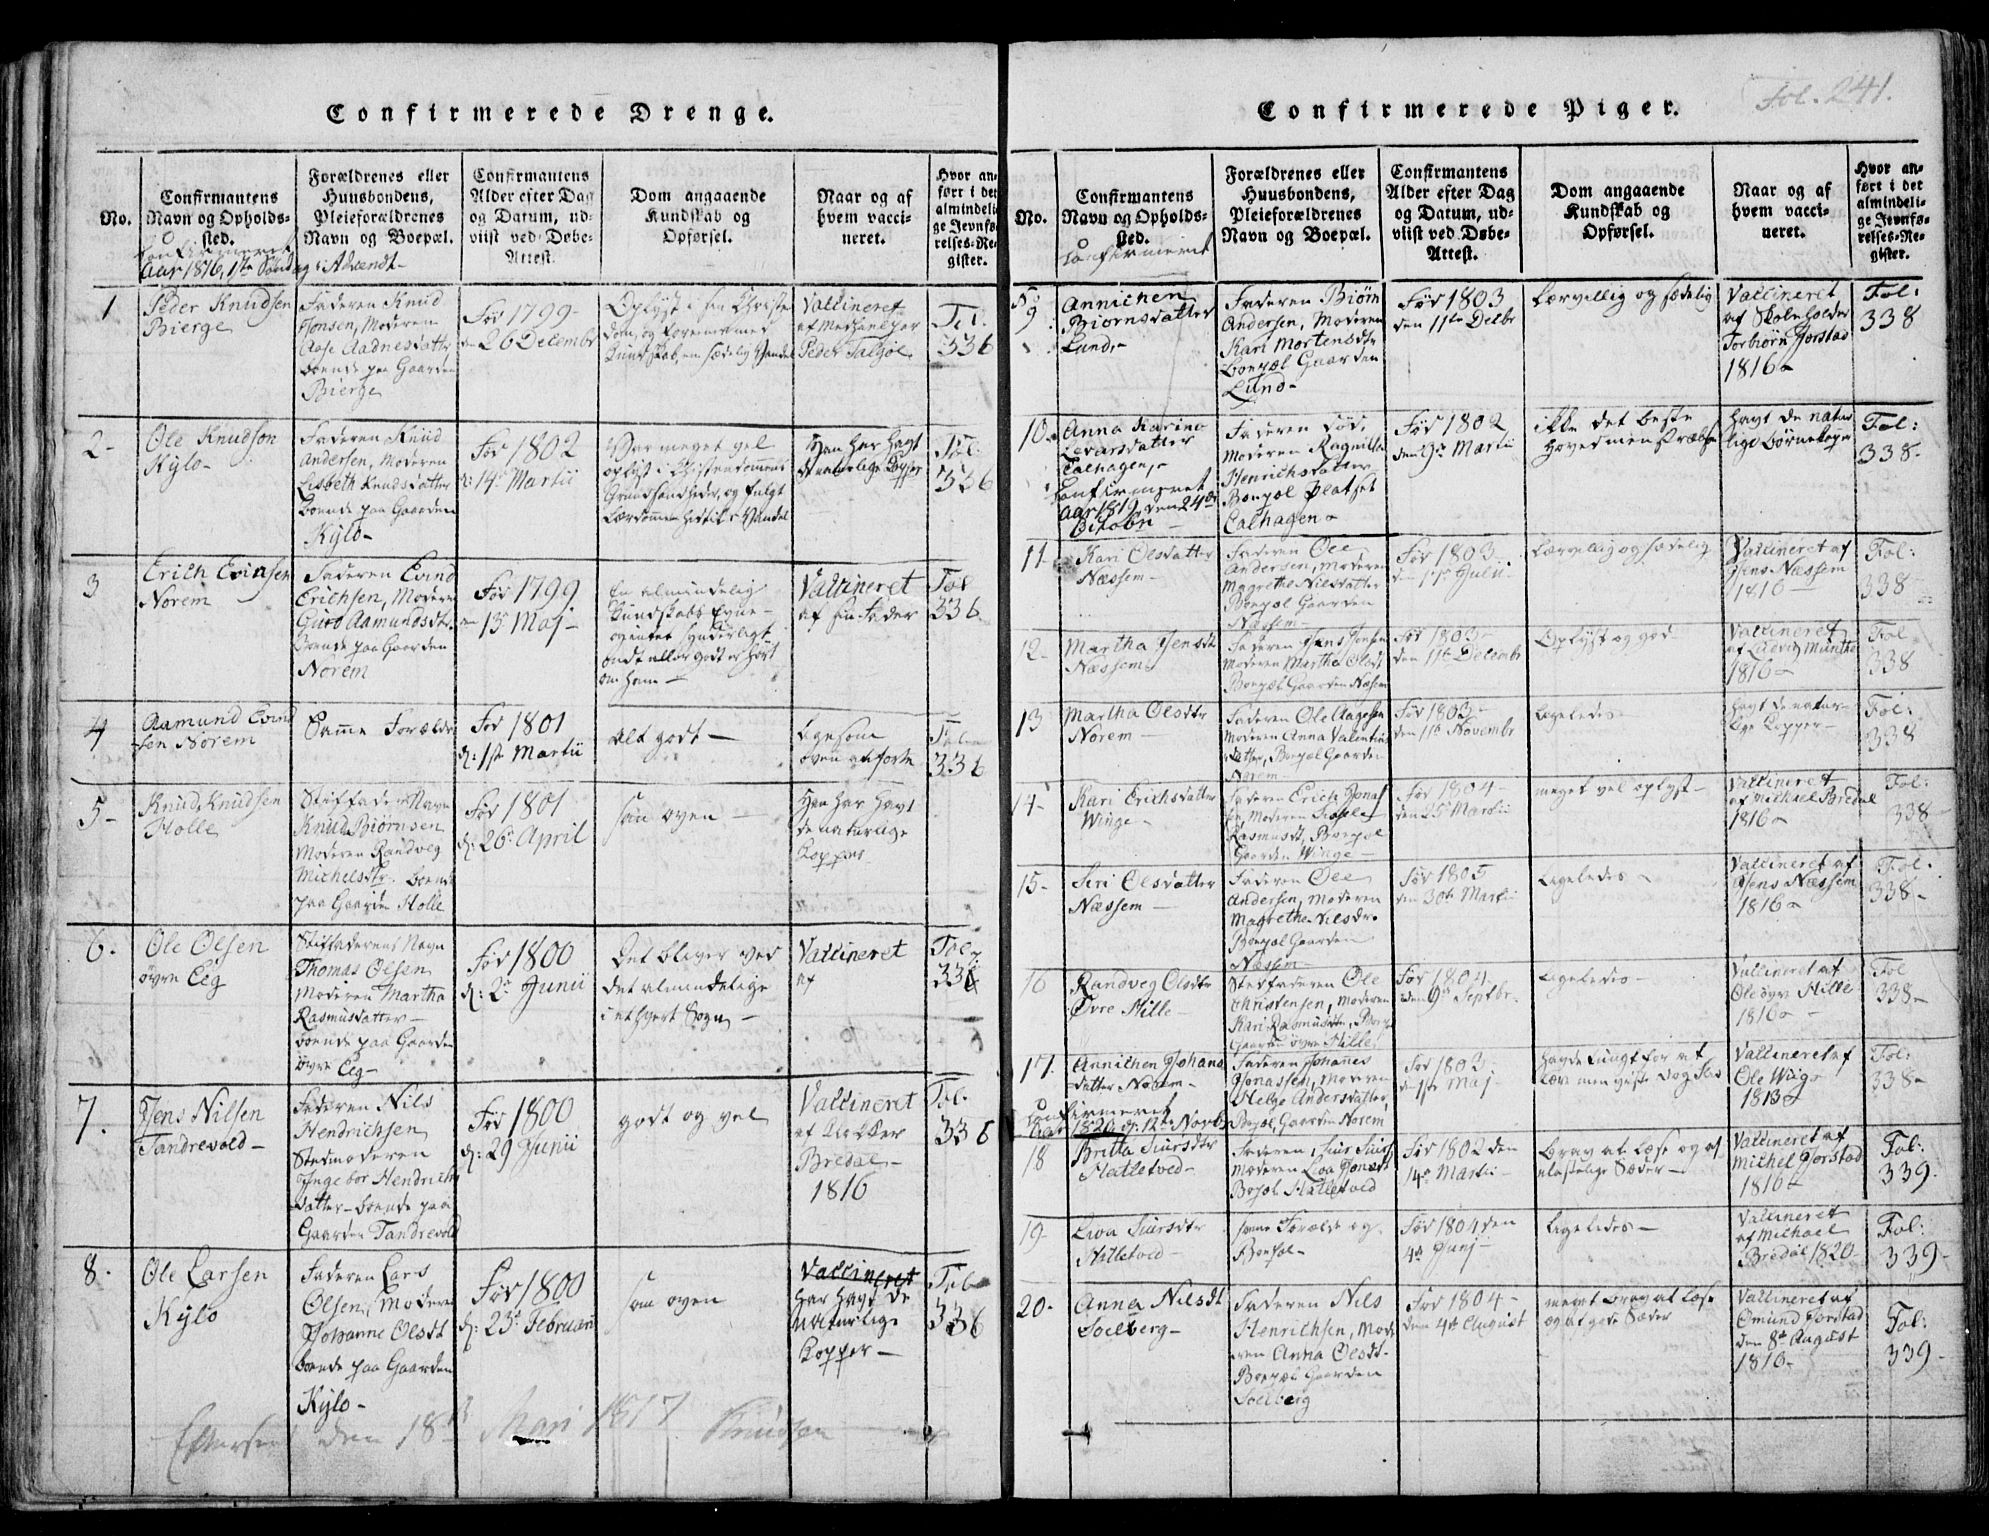 Confirmerede Drenge.
No.
Confirmantens
Navn og Opholds-
sted.
Forældrenes eller
Huusbondens,
Pleieforældrenes
Navn og Boepæl.
Confirmantens
Alder efter Dag
og Datum, ud-
viist ved Døbe-
Attest.
Dom angaaende
Kundskab og
Opførsel.
Naar og af
hvem vacci-
neret.
Hvor an-
ført i det
almindeli-
ge Jevnfø-
relses-Re-
gister.
Confirmeret
Aar 1816, 1ste Søndag i Advendt-
1
Peder Knudsen
Bierge
Faderen Knud
Jonsen, Moderen
Aase Aadnesdatter
boende paa Gaarden
Bierge
Fød 1799-
26 Decembr
Vaccineret
af Medhielper
Peder Talgøe
Fol.
336
2-
Ole Knudson
Kylo-
Faderen Knud
Andersen, Moderen
Lisbeth Knudsdatter
boende paa Gaarden
Kylo-
Fød 1802
d: 14de Martii
Han har havt
de naturlige Kopper
Fol:
336
3
Erich Evinsen
Norem
Faderen Evind
Erichsen, Moderen
Guro Aamundsdtr.
Boende paa Gaarden
Norem
Fød 1799
13de Maj-
En almindelig
Kundskabs Evne-
og intet synderligt
ondt eller godt er hørt
om ham-
Vaccineret
af sin Fader
Fol
336.
4
Aamund Evind
sen Norem
Samme Forældre
Fød 1801
d: 1ste Martii
Alt godt-
Ligesom
oven anførte
Fol.
336
5-
Knud Knudsen
Holle
Stiffaderens Navn
Knud Biørnsen
Moderen Randveg
Michelsdtr. boende
paa Gaarden Holle
Fød 1801
d: 26de April
som oven-
Han har havt
de naturlige
Kopper
6.
Ole Olsen
øvre Eeg
Stiffaderens Navn
Thomas Olsen
Moderen Martha
Rasmusdatter-
boende paa Gaarden
øvre Eeg-
Fød 1800
d: 2den Junii
Det bliver ved
det almindelige
i ethvert Sogn-
Vaccineret
af
Fol.
336
7.
Jens Nilsen
Tandrevold-
Faderen Nils
Hendrichsen
Stedmoderen
Ingebor Hendrichs
datter- boende paa
Gaarden Tandrevold
Fød 1800
d: 29 Junii
godt og vel
Vaccineret
af Klokker
Bredal-
1816
Fol.
336
8.
Ole Larsen
Kylo
Faderen Lars
Olsen, Moderen
Johanne Olsdt
boende paa Gaarden
Kylo-
Fød 1800
d: 23de Februarii
som oven
Vaccineret
har havt de
naturlige
Kopper-
Fol.
336
Efterseet den 18de Marti 1817 Knudsen
Fol. 241.
Confirmerede Piger.
No.
Confirmantens
Navn og Opholds-
sted.
Forældrenes eller
Huusbondens,
Pleieforældrenes
Navn og Boepæl.
Confirmantens
Alder efter Dag
og Datum, ud-
viist ved Døbe-
Attest.
Dom angaaende
Kundskab og
Opførsel.
Naar og af
hvem vacci-
neret.
Hvor an-
ført i det
almindeli-
ge Jevnfø-
relses-Re-
gister.
Confirmeret
No 9
Annichen
Biørnsdatter
Lund-
Faderen Biørn
Andersen, Moderen
Kari Mortensdtr
boepæl Gaarden
Lund-
Fød 1803
den 11te Decbr
Lærvillig og sædelig
Vaccineret
af Skoleholder
Torbiørn Jorstad
1816-
Fol:
338
10-
Anna Karina
Levarsdatter
Calhagen,-
Faderen død,
Moderen Ragnilla
Henrichsdatter
Boepæl Pladset
Calhagen-
Fød 1802
den 9de Martii
ikke det beste
Hoved men stræbsom
Havt de natur
lige Børnekopper
Fol:
338-
Confirmeret
Aar 1819, den 24de
Octobr-
11-
Kari Olsdatter
Næssem-
Faderen Ole
Andersen, Moderen
Magrethe Nilsdatter
Boepæl Gaarden
Næssem-
Fød 1803-
Julii
Lærvillig og sædelig
Vaccineret af
Jens Næssem
1816-
Fol:
338
12-
Martha Jensdtr
Næssem
Faderen Jens Jonsen
Moderen Martha Olsdt
Boepæl Gaarden Næssem
Fød 1803-
den 11te Decembr
Oplyst og god-
Vaccineret
af Ludvig Munthe
1816-
Fol
338
13
Martha Olsdtr
Norem-
Faderen Ole Aagesen
Moderen Anna Valentins
datter, Boepæl Gaarden
Norem
Fød 1803-
den 11te Novembr
Ligeledes-
Havt de natur-
lige Kopper-
Fol:
338
14-
Kari Erichsdatter
Winge-
Faderen Erich Jonas
sen, Moderen
Rasmusdt, Boepæl
Gaarden Winge-
Fød 1804-
den 25de Martii
meget vel oplyst-
Vaccineret
af Michael Bredal
1816-
Fol:
338-
15-
Siri Olsdatter
Næssem-
Faderen Ole
Andersen, Moderen
Magrethe Nilsdtr.
Boepæl Gaarden
Næssem-
Fød 1805
den 30te Martii
Ligeledes-
Vaccineret af
Jens Næssem
1816-
Fol.
338-
16
Randveg Olsdtr
Øvre Hille-
Stedfaderen Ole
Christensen, Moderen
Kari Rasmusdtr, Boep
Gaarden øvre Hille
Fød 1804.
den 9de Septbr.
Ligeledes-
Vaccineret af
Ole øvr Hille
1816-
Fol
338-
17.
Annichen Johans
datter Norem-
Faderen Johannes
Jonassen, Moderen
Helge Andersdatter,
Boepæl Gaarden Norem
Fød 1803
den 1ste Maj-
Vaccineret af
Ole Winge
1813-
Fol:
338-
Confirmeret
Aar 1820 d: 12te Novbr
18
Britta Siursdtr
Hatletved-
Faderen, Siur Siurs
Moderen Liva Jonsdt
Boepæl Hatletved
Fød 1802 den
14de Martii-
Brav at læse og af
ulastelige Sæder-
Vaccineret af
Michel Jorstad
1816-
Fol:
339-
19-
Liva Siursdtr
Hatletved-
samme Forældre og
Boepæl-
Fød 1804 den
4de Junj-
Ligeledes-
Vaccineret
af Michael
Bredal 1820-
Fol:
339-
20-
Anna Nilsdt
Soelberg-
Faderen Nils
Henrichsen, Mode
ren Anna Olsdt-
Boepæl Gaarden
Soelberg
Fød 1804-
den 4de August
meget brav at læse
og at gode Sæder
Vaccineret af
Omund Jorstad
den 8de August
1816-
Fol:
339-